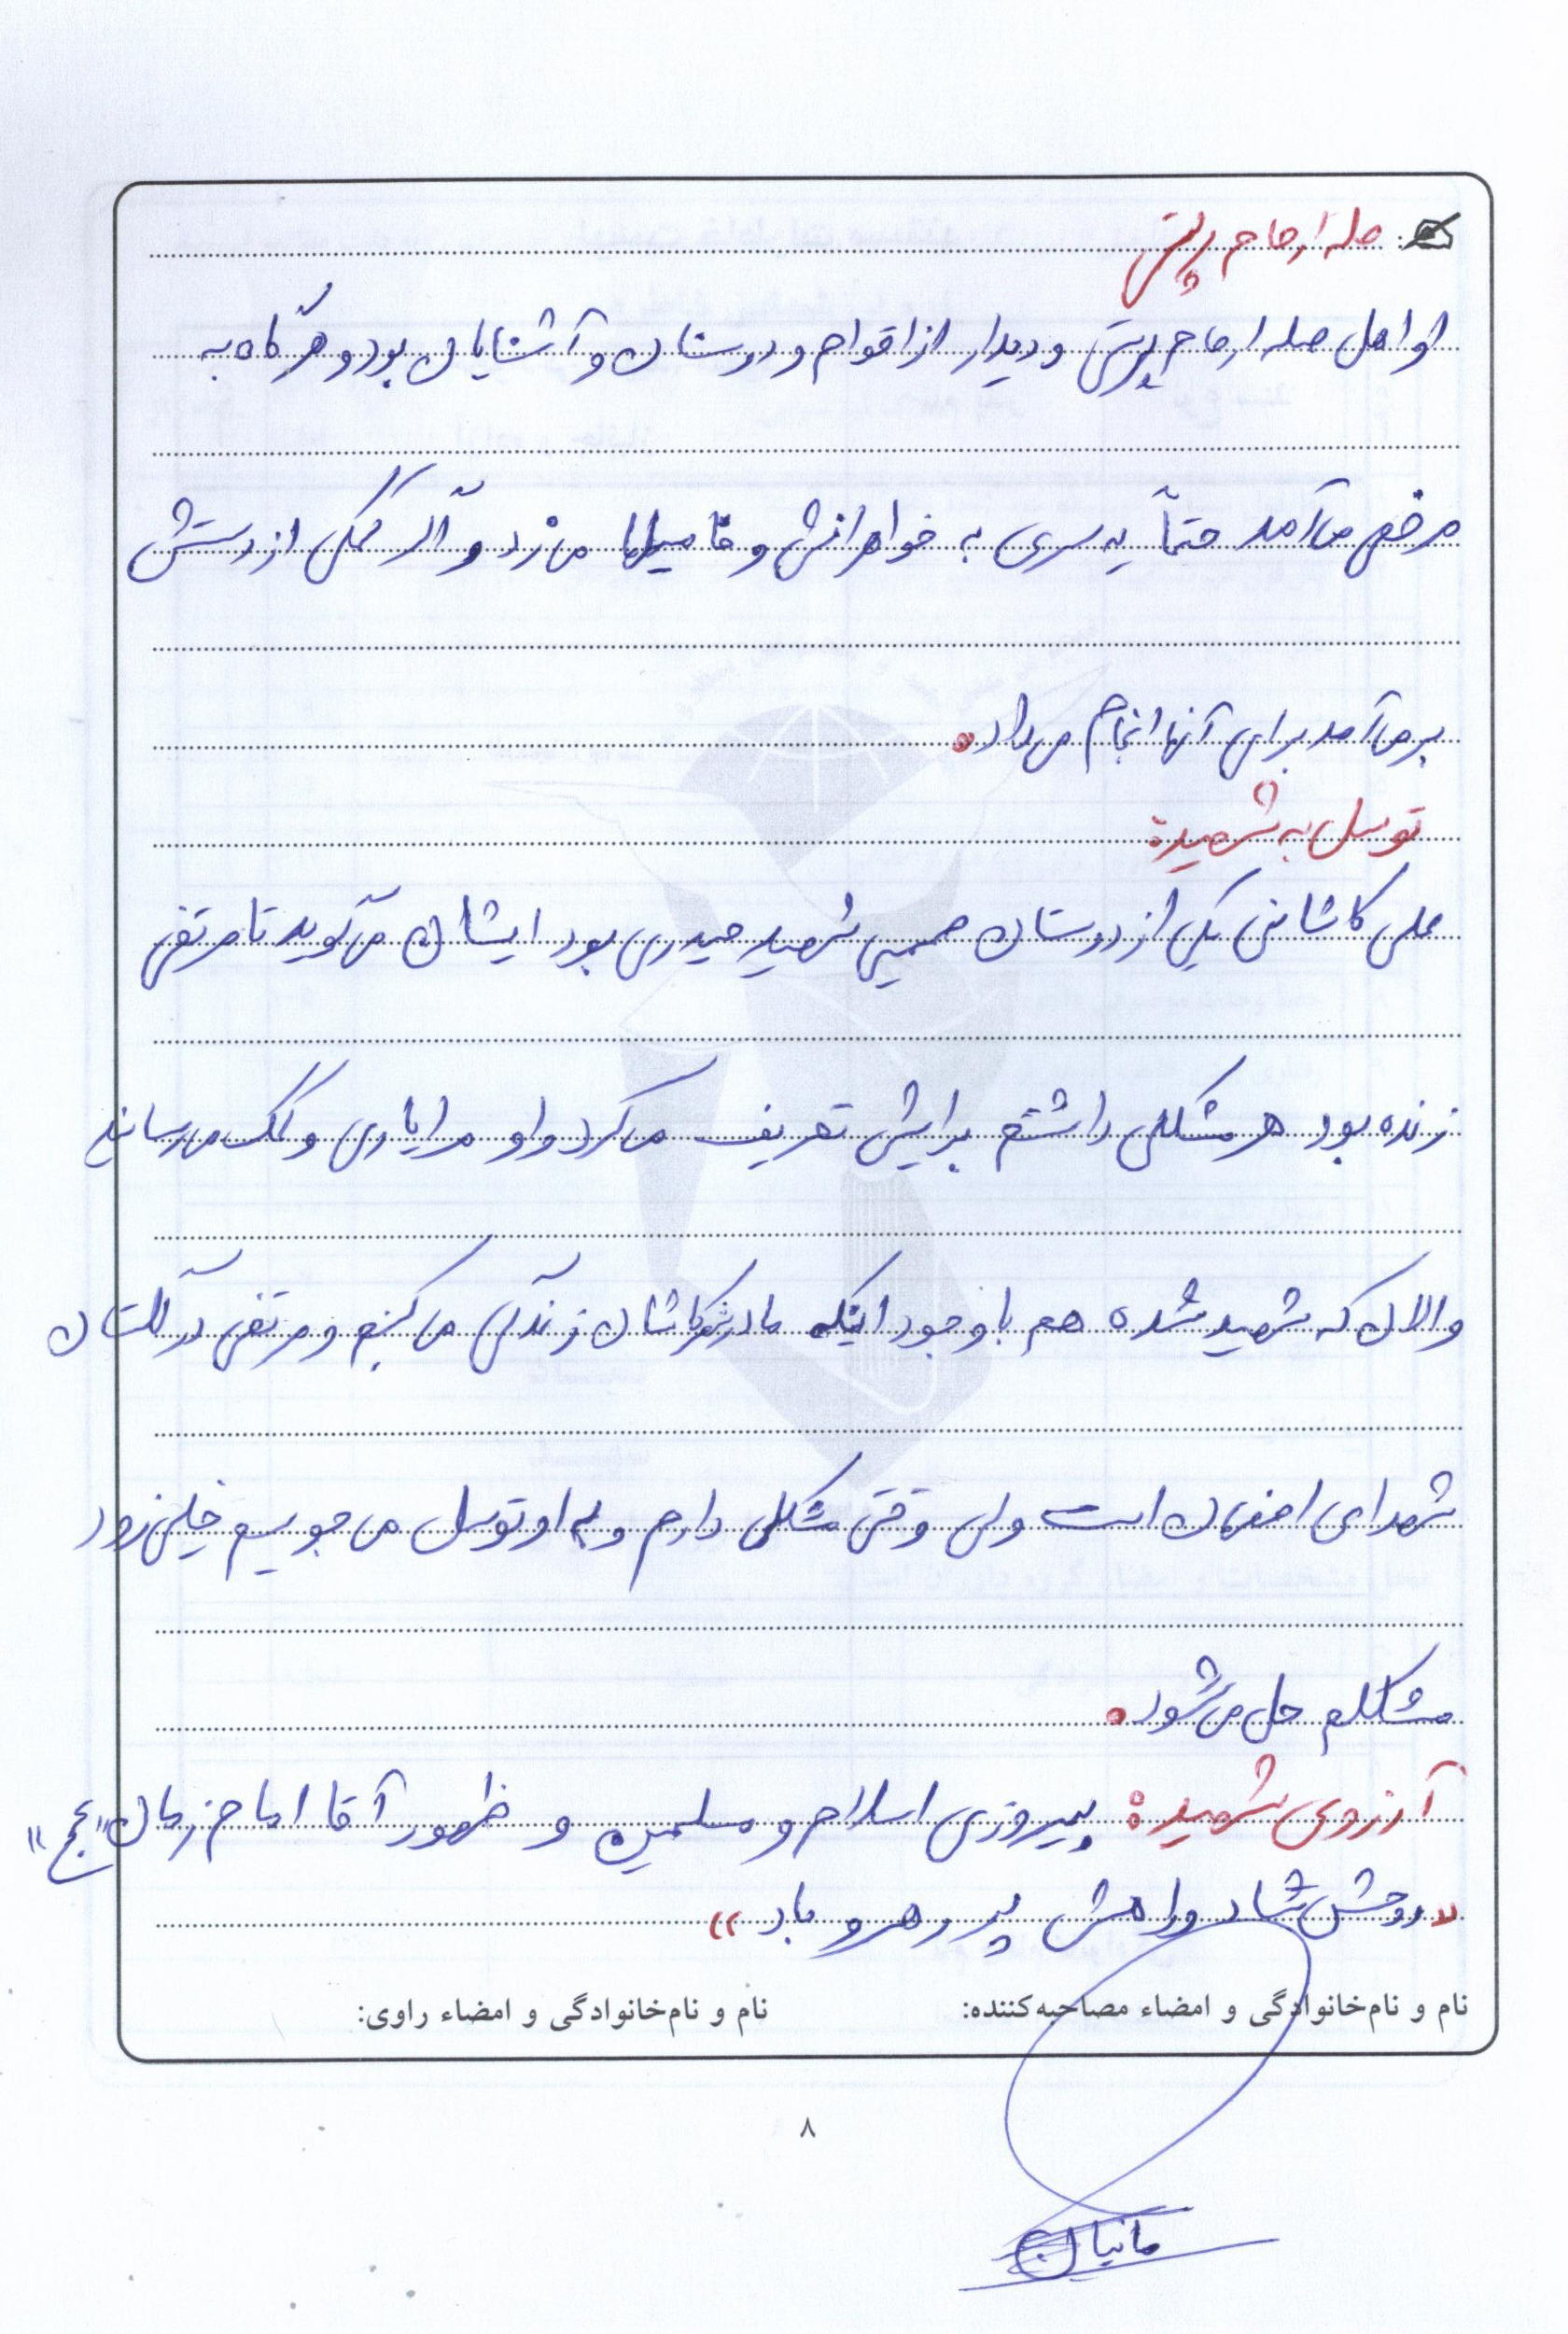 صله ارحام
او اهل صله ارحام و دیدار از اقوام و دوستان و آشنایان بود و هرگاه به
مرخصی می‌آمد حتماً یه سری به خواهرانش و فامیلها می‌زد و اگر کمکی از دستش
برمی‌آمد برای آنها انجام می‌داد.
توسل به شهید:
علی کاشانی یکی از دوستان صمیمی شهید حیدری بود ایشان می‌گوید تا مرتضی
زنده بود هر مشکلی داشتم برایش تعریف می‌کردم و او مرا یاری و کمک می‌رساند
والان که شهید شده هم با وجود اینکه ما در شهر کاشان زندگی می‌کنیم و مرتضی در گلستان
شهدای اصفهان است ولی وقتی مشکلی دارم و به او توسل می‌جویم خیلی زود
مشکلم حل می‌شود.
آرزوی شهید: پیروزی اسلام و مسلمین و ظهور آقا امام زمان "عج"
«روحش شاد و راهش پر رهرو باد»
نام و نام‌خانوادگی و امضاء مصاحبه‌کننده: نام و نام‌خانوادگی و امضاء راوی:
۸
مانیان